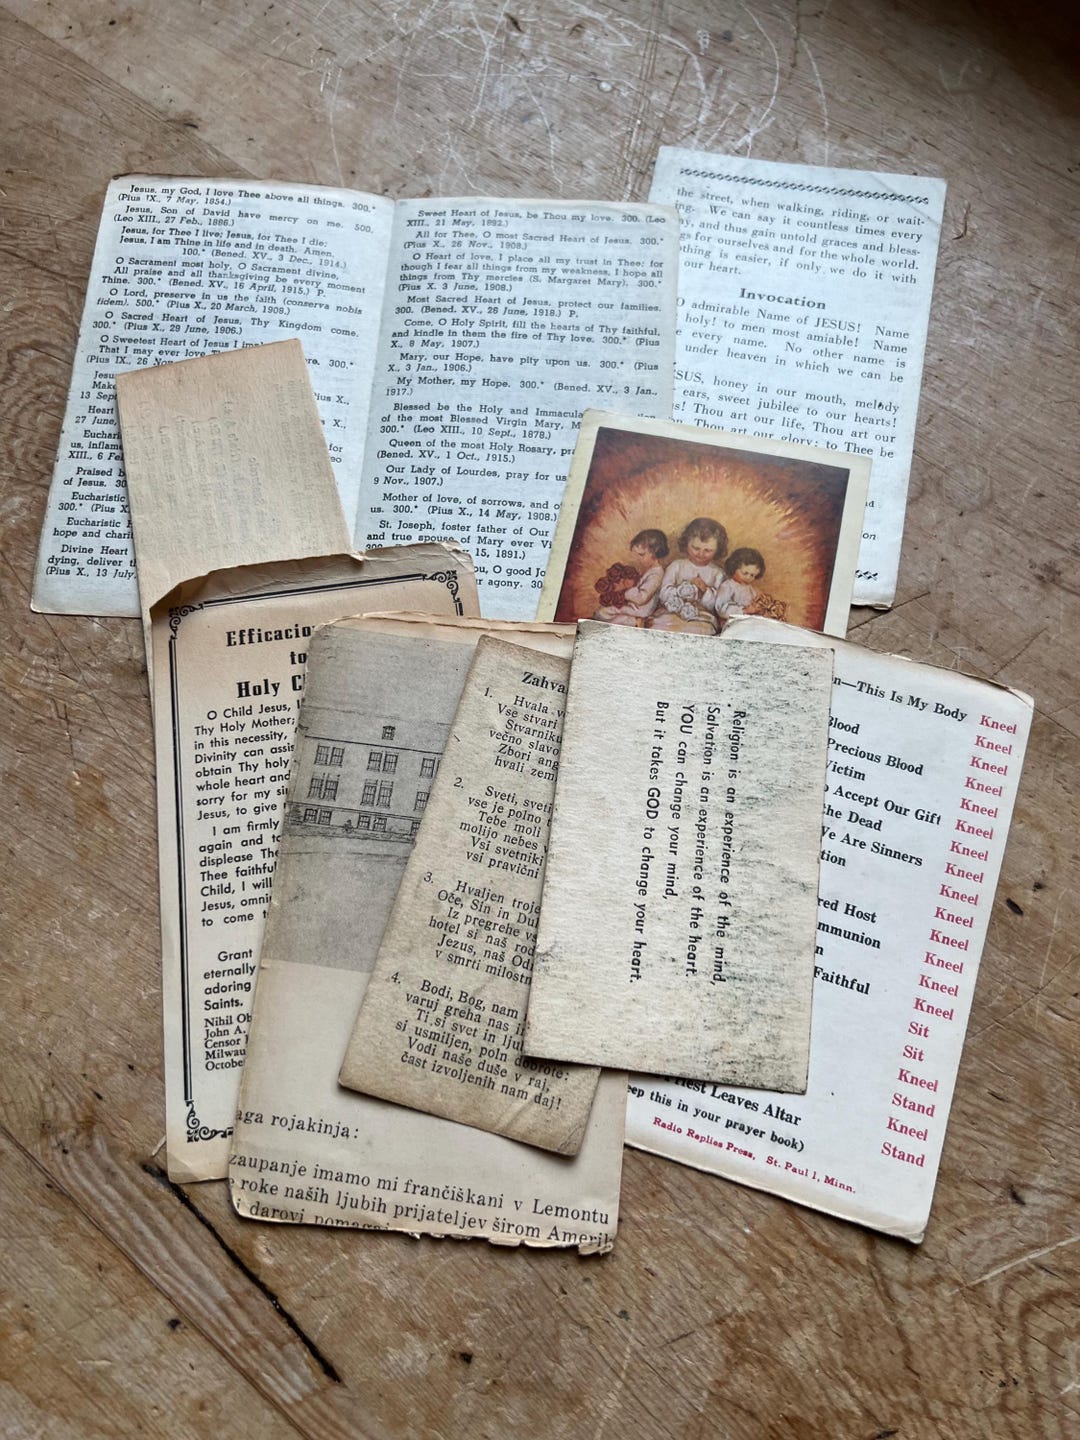 Jesus, my God, I love Thee above all things. 300.*
(Pius IX., 7 May, 1854.)
Jesus, Son of David have mercy on me. 500.
(Leo XIII., 27 Feb., 1886.)
Jesus, for Thee I live; Jesus, for Thee I die;
Jesus, I am Thine in life and in death. Amen.
100,* (Bened. XV., 3 Dec., 1914.)
O Sacrament most holy, O Sacrament divine,
All praise and all thanksgiving be every moment
Thine. 300.* (Bened. XV., 16 April, 1915.) P.
O Lord, preserve in us the faith (conserva nobis
fidem). 500.* (Pius X., 20 March, 1908.)
O Sacred Heart of Jesus, Thy Kingdom come.
300.* (Pius X., 29 June, 1906.)
O Sweetest Heart of Jesus I
That I may ever love 300.*
(Pius IX., 26
Jesu
Make
13 Sept
Heart
27 June,
Euchari
us, inflame
XIII., 6 Fe
Praised b
of Jesus. 30
Eucharistic
300.* (Pius X.,
Eucharistic H
hope and charit
Divine Heart
dying, deliver t
(Pius X., 13 July
Sweet Heart of Jesus, be Thou my love. 300. (Leo
XIII., 21 May, 1892.)
All for Thee, O most Sacred Heart of Jesus. 300.*
(Pius X., 26 Nov., 1908.)
O Heart of love, I place all my trust in Thee; for
though I fear all things from my weakness, I hope all
things from Thy mercies (S. Margaret Mary). 300.*
(Pius X. 3 June, 1908.)
Most Sacred Heart of Jesus, protect our families.
300. (Bened. XV., 26 June, 1918.) P.
Come, O Holy Spirit, fill the hearts of Thy faithful,
and kindle in them the fire of Thy love. 300.* (Pius
X., 8 May, 1907.)
Mary, our Hope, have pity upon us. 300.* (Pius
X., 3 Jan., 1906.)
My Mother, my Hope. 300.* (Bened. XV., 3 Jan.,
1917.)
Blessed be the Holy and Immacula
of the most Blessed Virgin Mary, M
300.* (Leo XIII., 10 Sept., 1878.)
Queen of the most Holy Rosary, pra
(Bened. XV., 1 Oct., 1915.)
Our Lady of Lourdes, pray for us
9 Nov., 1907.)
Mother of love, of sorrows, and of
us. 300.* (Pius X., 14 May, 1908.)
St. Joseph, foster father of Our
and true spouse of Mary ever Vi
15, 1891.)
ou, O good Jo
r agony. 30
the street, when walking, riding, or wait-
ing. We can say it countless times every
ay, and thus gain untold graces and bless-
gs for ourselves and for the whole world.
thing is easier, if only we do it with
our heart.
Invocation
O admirable Name of JESUS! Name
holy! to men most amiable! Name
e every name. No other name is
under heaven in which we can be
ESUS, honey in our mouth, melody
ears, sweet jubilee to our hearts!
s! Thou art our life, Thou art our
n, Thou art our glory; to Thee be
Efficacio
to
Holy C
O Child Jesus, I
Thy Holy Mother;
in this necessity,
Divinity can assis
obtain Thy holy
whole heart and
sorry for my si
Jesus, to give
I am firmly
again and to
displease The
Thee faithful
Child, I will
Jesus, omni
to come t
Grant
eternally
adoring
Saints.
Nihil Ob
John A.
Censor
Milwau
October
aga rojakinja:
zaupanje imamo mi frančiškani v Lemontu
roke naših ljubih prijateljev širom Amerik
darovi pomagaj
Zahva
1. Hvala v
Vse stvari
Stvarniku
večno slavo
Zbori ang
hvali zem
2. Sveti, sveti
vse je polno t
Tebe moli
molijo nebes
Vsi svetniki
vsi pravični
3. Hvaljen troje
Oče, Sin in Duh
Iz pregrehe vs
hotel si naš rod
Jezus, naš Od
v smrti milostn
4. Bodi, Bog, nam
varuj greha nas i
Ti si svet in lju
si usmiljen, poln dobrote:
Vodi naše duše v raj,
čast izvoljenih nam daj!
Religion is an experience of the mind,
Salvation is an experience of the heart.
YOU can change your mind,
But it takes GOD to change your heart.
n—This Is My Body Kneel
Blood Kneel
Precious Blood Kneel
Victim Kneel
o Accept Our Gift Kneel
the Dead Kneel
We Are Sinners Kneel
tion Kneel
Kneel
red Host Kneel
mmunion Kneel
n Kneel
Faithful Kneel
Kneel
Sit
Sit
Kneel
Stand
Priest Leaves Altar Kneel
eep this in your prayer book) Stand
Radio Replies Press, St. Paul 1, Minn.